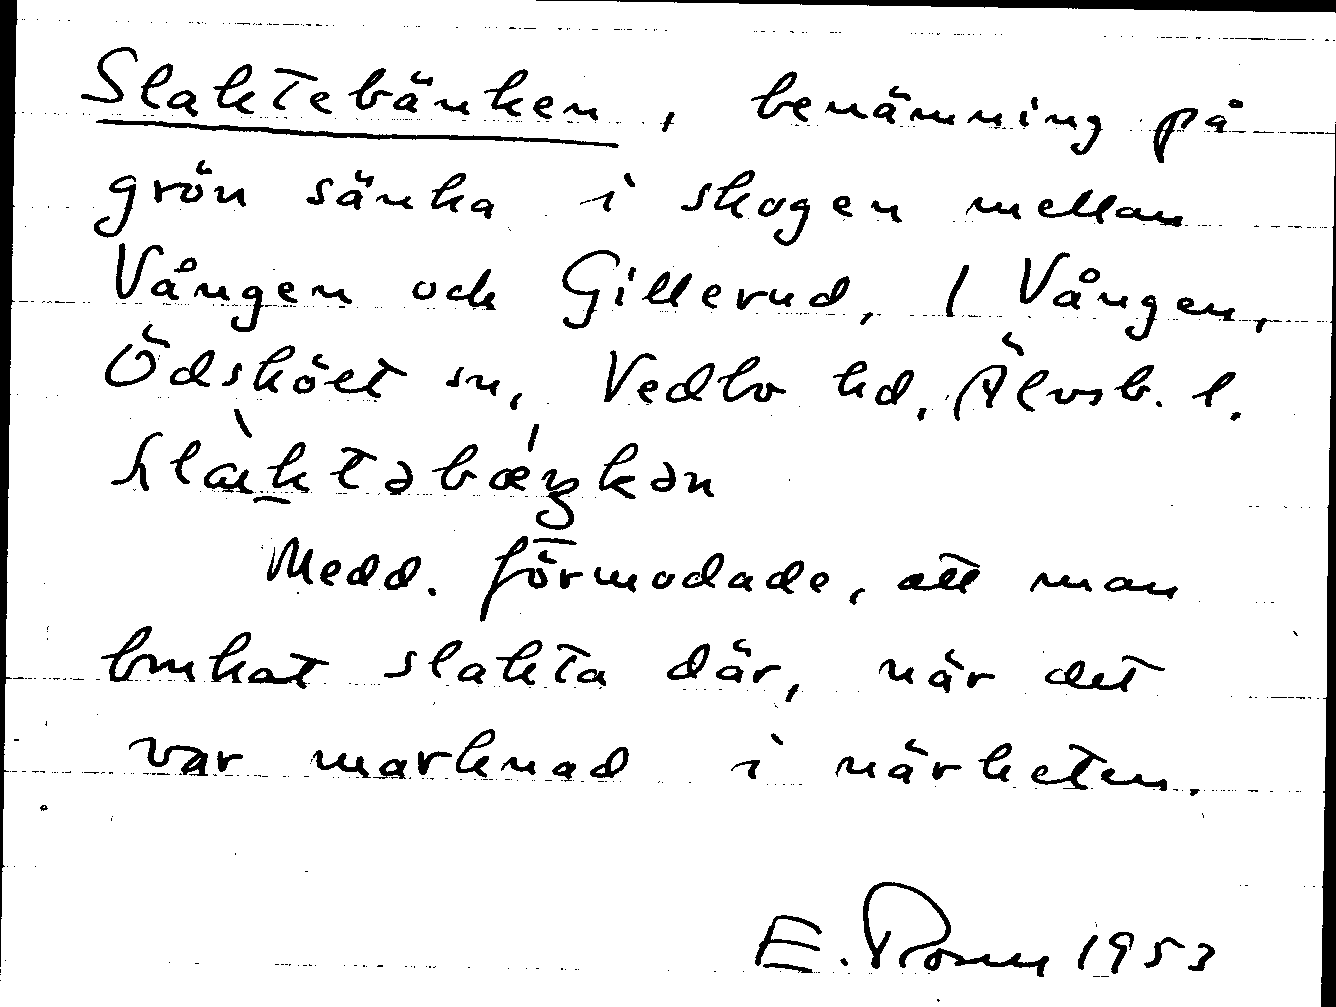 Slaktebänken, benämning på
grön sänka i skogen mellan
Vången och Gillerud, 1 Vången,
Ödsköet sn, Vedbo hd, Älvsb. l.
Medd. förmodade, att man
brukat slakta där, när det
var marknad i närheten.
E. 1953